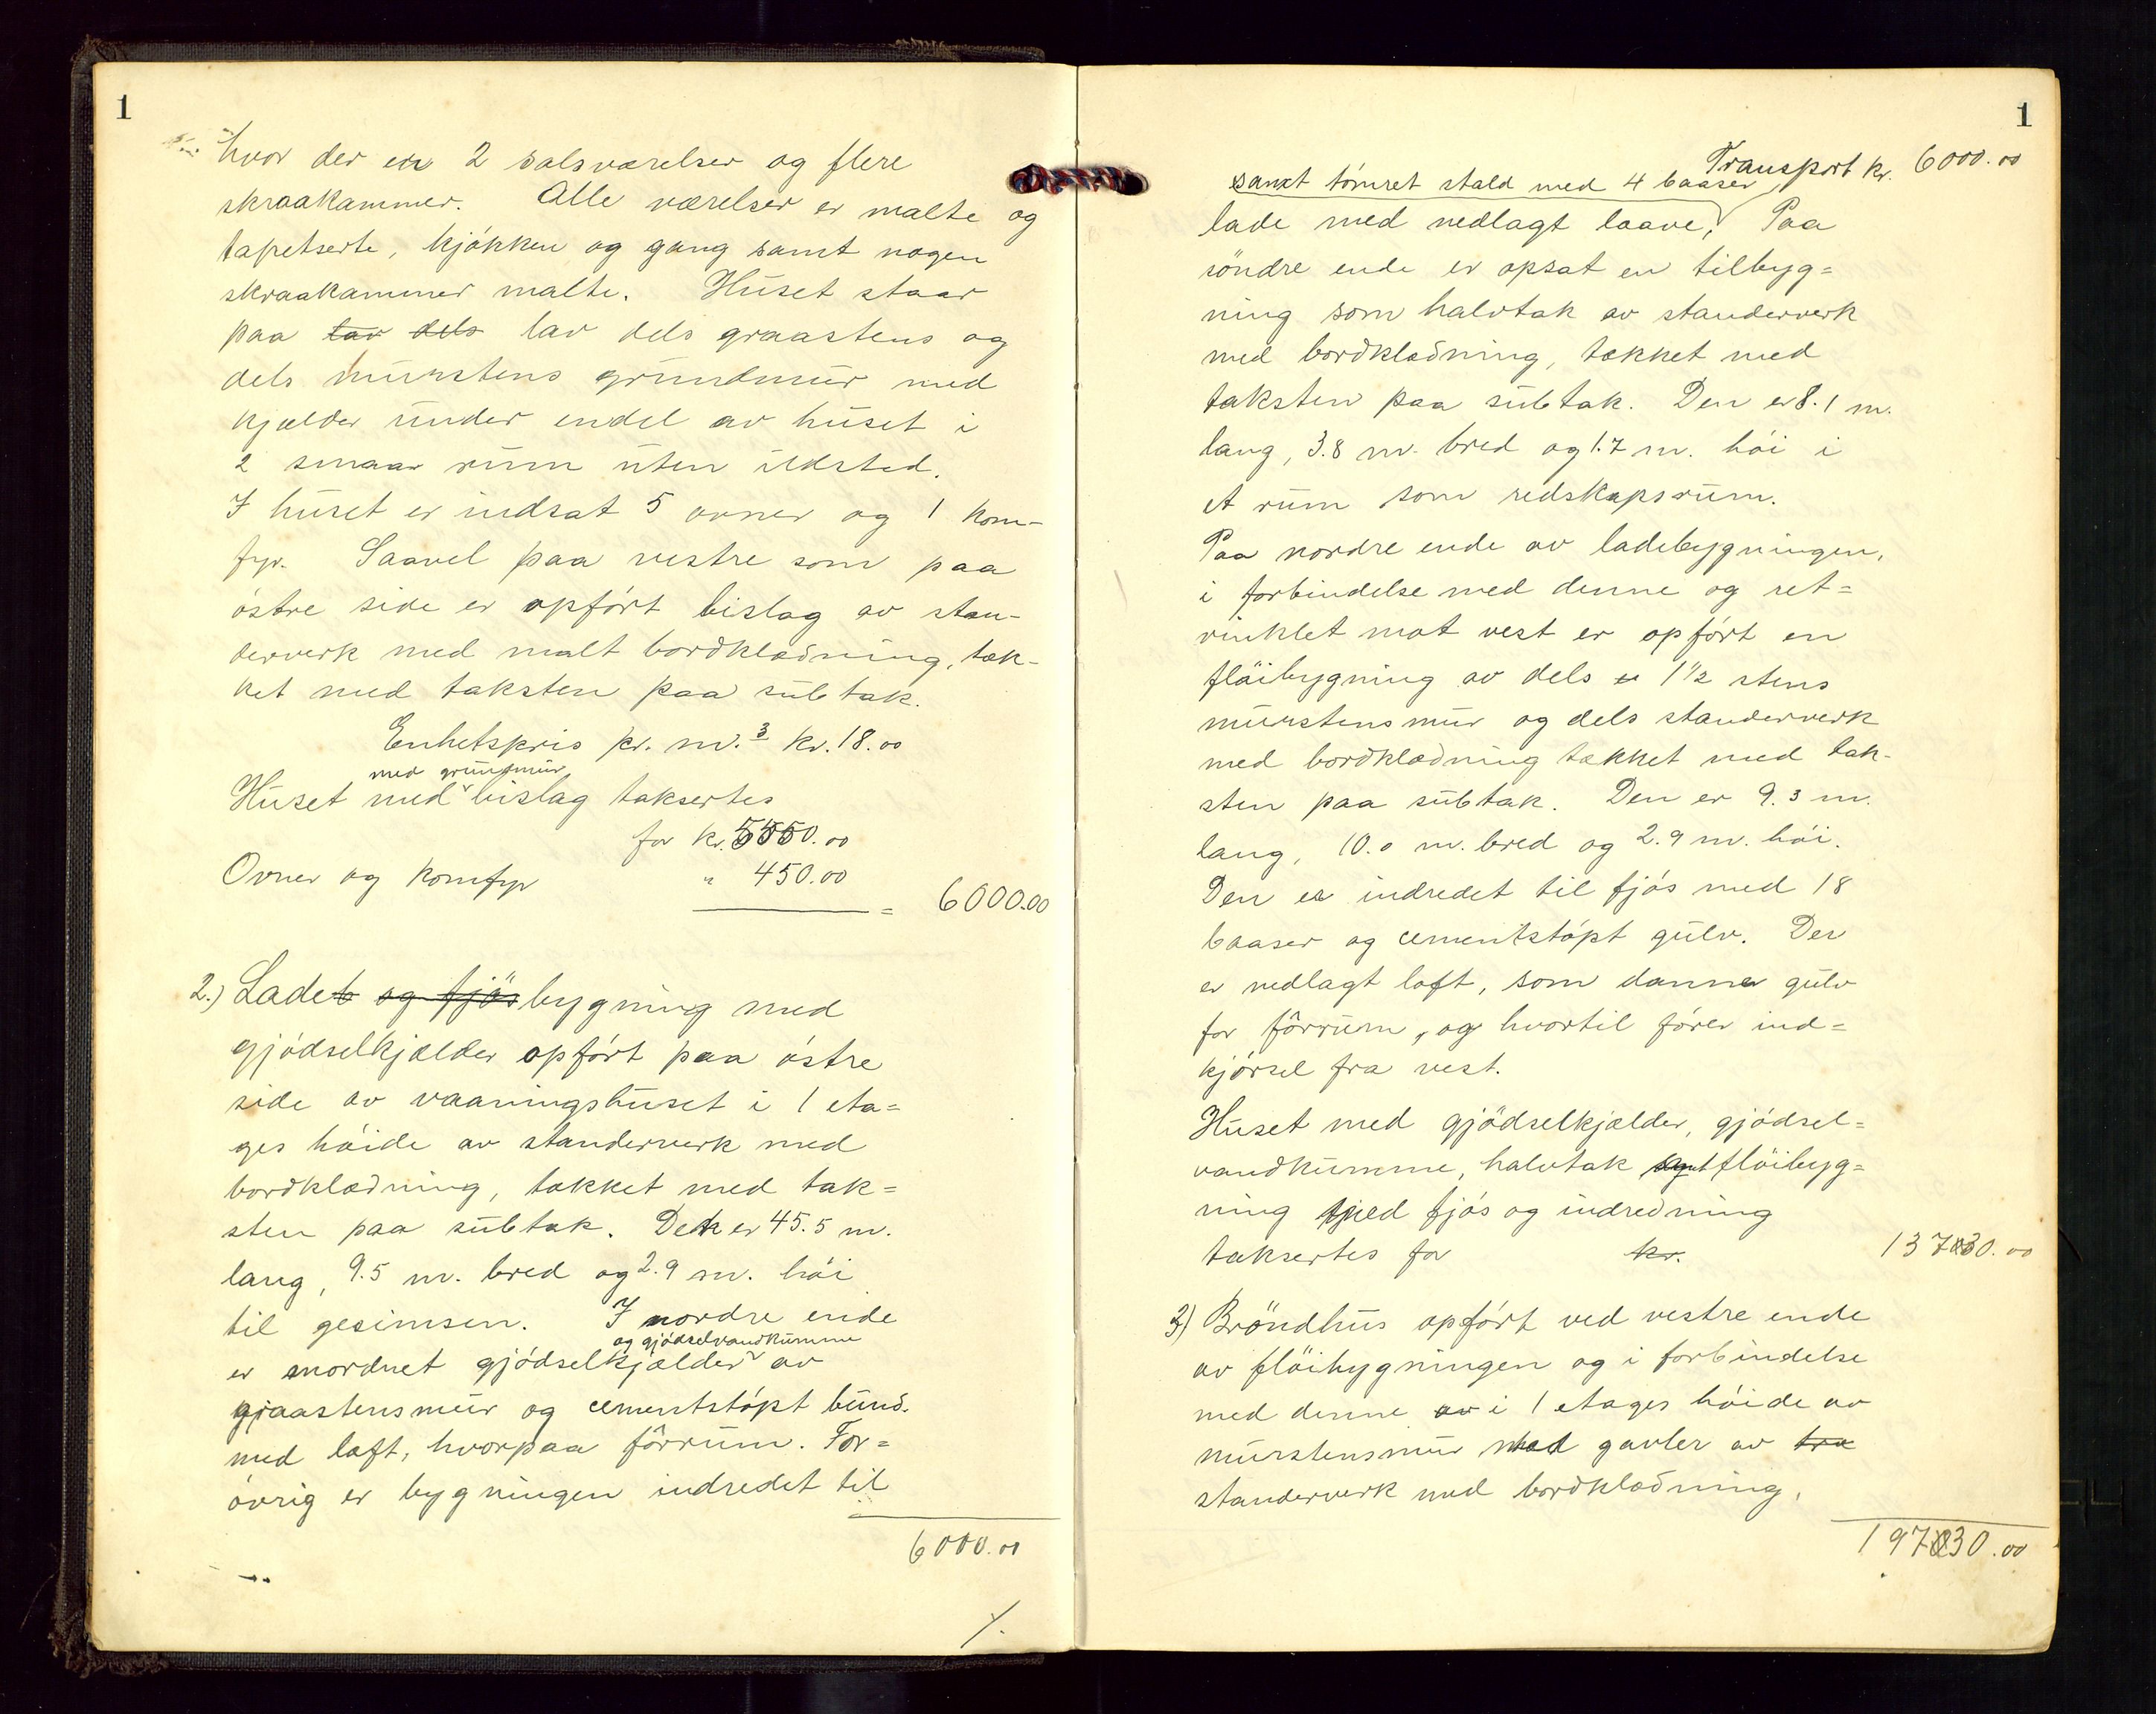 1
hvor der er 2 salsværelser og flere
skraakammer. Alle værelser er malte og
tapetserte, kjøkken og gang samt nogen
skraakammer malte. Huset staar
paa lav dels lav dels graastens og
dels murstens grundmur med
kjælder under endel av huset i
2 smaa rum uten ildsted.
I huset er indsat 5 ovner og 1 kom-
fyr. Saavel paa vestre som paa
østre side er opført bislag av stan-
derverk med malt bordklædning, tæk-
ket med taksten paa subtak.
Enhetspris pr. m.3 kr. 18.00
med grundmur
Huset med bislag taksertes
for kr. 5550.00
Ovner og komfyr " 450.00
= 6000.00
2.) Lade og fjøsbygning med
gjødselkjælder opført paa østre
side av vaaningshuset i 1 eta=
ges høide av standerverk med
bordklædning, tækket med tak=
sten paa subtak. Den er 45.5 m.
lang, 9.5 m. bred og 2.9 m. høi
til gesimsen. I nordre ende
og gjødselvandkumme
er anordnet gjødselkjælder av
graastensmur og cementstøpt bund.
med loft, hvorpaa fôrrum. For=
øvrig er bygningen indredet til
6000.00
./.
1
Transport kr. 6000.00
samt tømret stald med 4 baaser
lade med nedlagt laave, Paa
søndre ende er opsat en tilbyg=
ning som halvtak av standerverk
med bordklædning, tækket med
taksten paa subtak. Den er 8.1 m.
lang, 3.8 m. bred og 1.7 m. høi i
et rum som redskapsrum.
Paa nordre ende av ladebygningen,
i forbindelse med denne og ret=
vinklet mot vest er opført en
fløibygning av dels 1 1/2 stens
murstensmur og dels standerverk
med bordklædning tækket med tak-
sten paa subtak. Den er 9.3 m.
lang, 10.0 m. bred og 2.9 m. høi.
Den er indredet til fjøs med 18
baaser og cementstøpt gulv. Der
er nedlagt loft, som danner gulv
for fôrrum, og hvortil fører ind=
kjørsel fra vest.
Huset med gjødselkjælder, gjødsel=
vandkumme, halvtak samt fløibyg=
ning med fjøs og indredning
taksertes for kr. 13730.00
3) Brøndhus opført ved vestre ende
av fløibygningen og i forbindelse
med denne av i 1 etages høide av
murstensmur med gavler av træ
standerverk med bordklædning,
19730.00